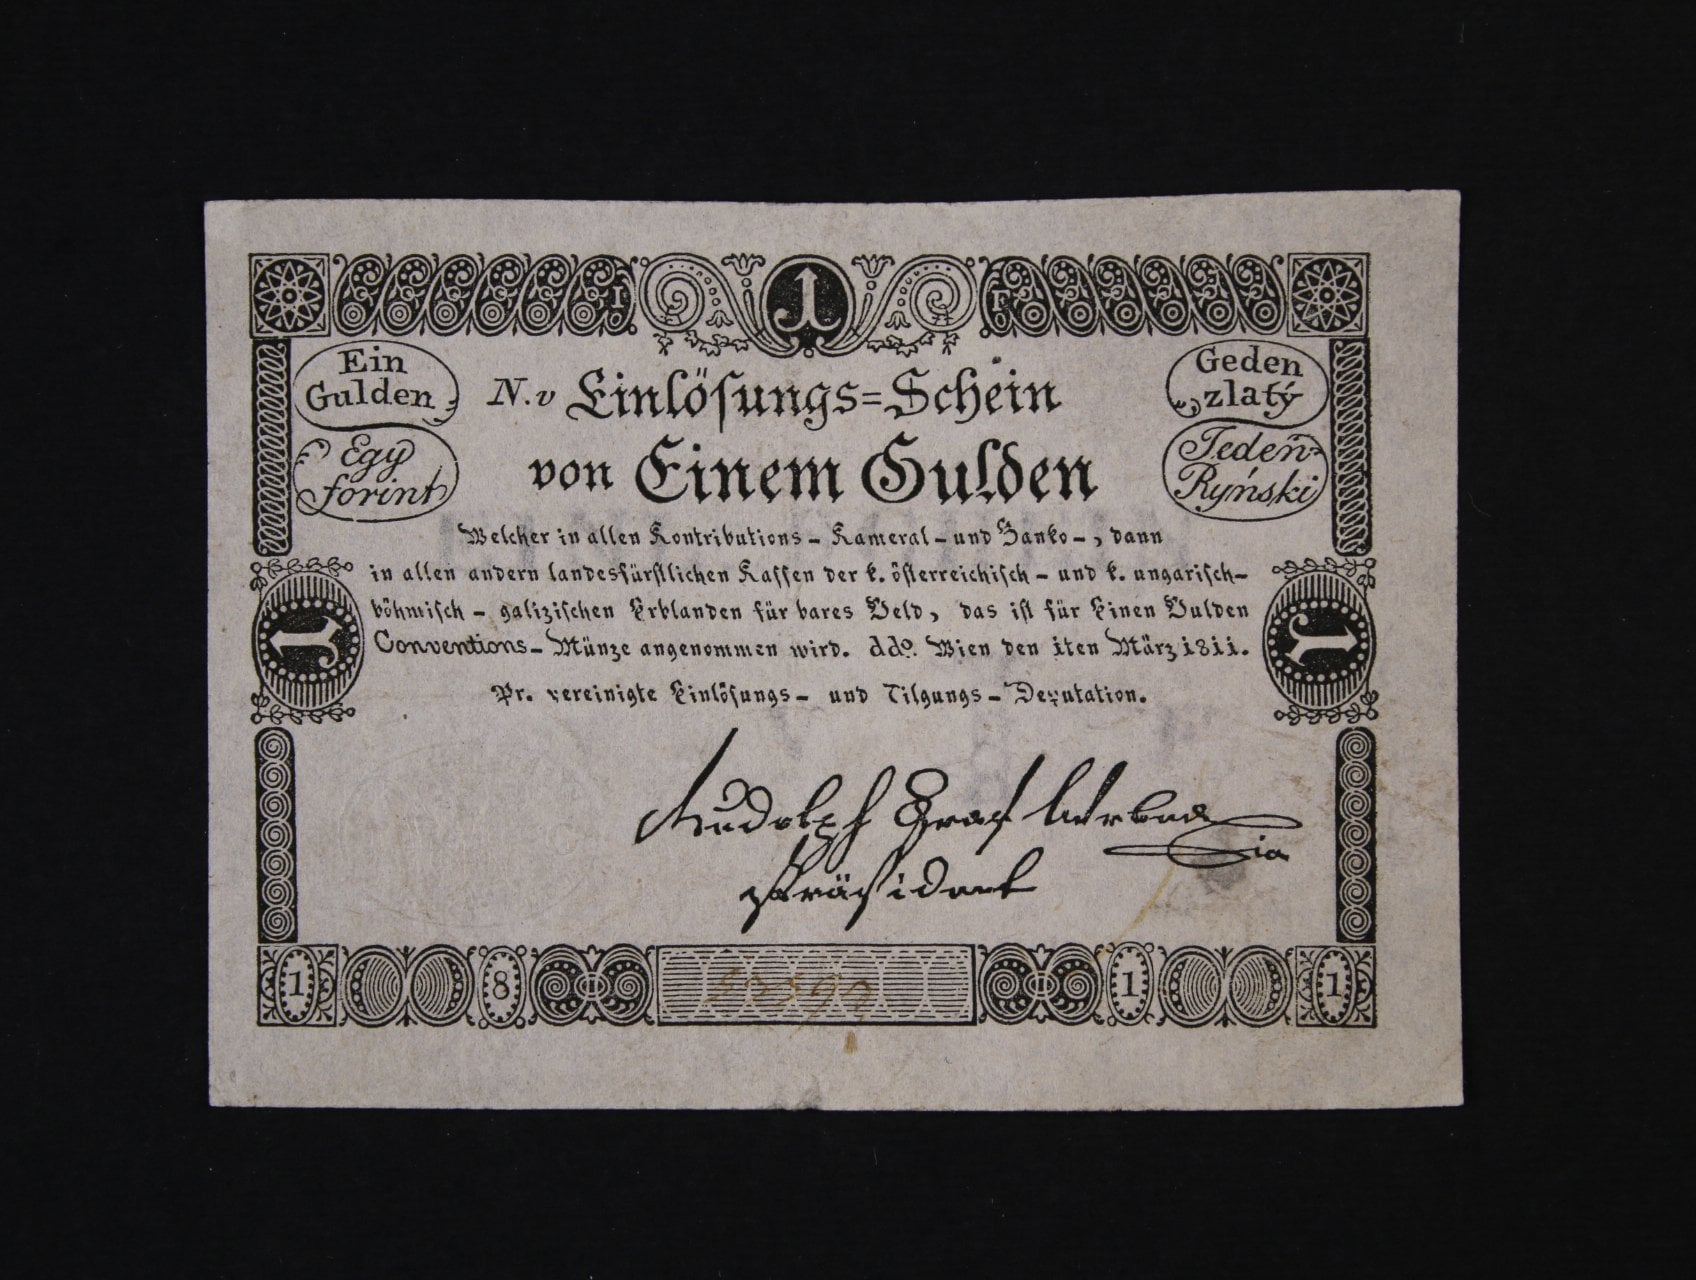 1
Ein
Gulden
Egy
forint
Geden
zlatý
Jeden
Ryński
N. v Einlösungs=Schein
von Einem Gulden
Welcher in allen Kontributions- Kameral- und Banko-, dann
in allen andern landesfürstlichen Kassen der k. österreichisch- und k. ungarisch-
böhmisch- galizischen Erblanden für bares Geld, das ist für Einen Gulden
Conventions- Münze angenommen wird. ddo. Wien den 1ten März 1811.
Pr. vereinigte Einlösungs- und Tilgungs- Deputation.
1
1
Rudolph Graf
Präsident
1 8 1 1